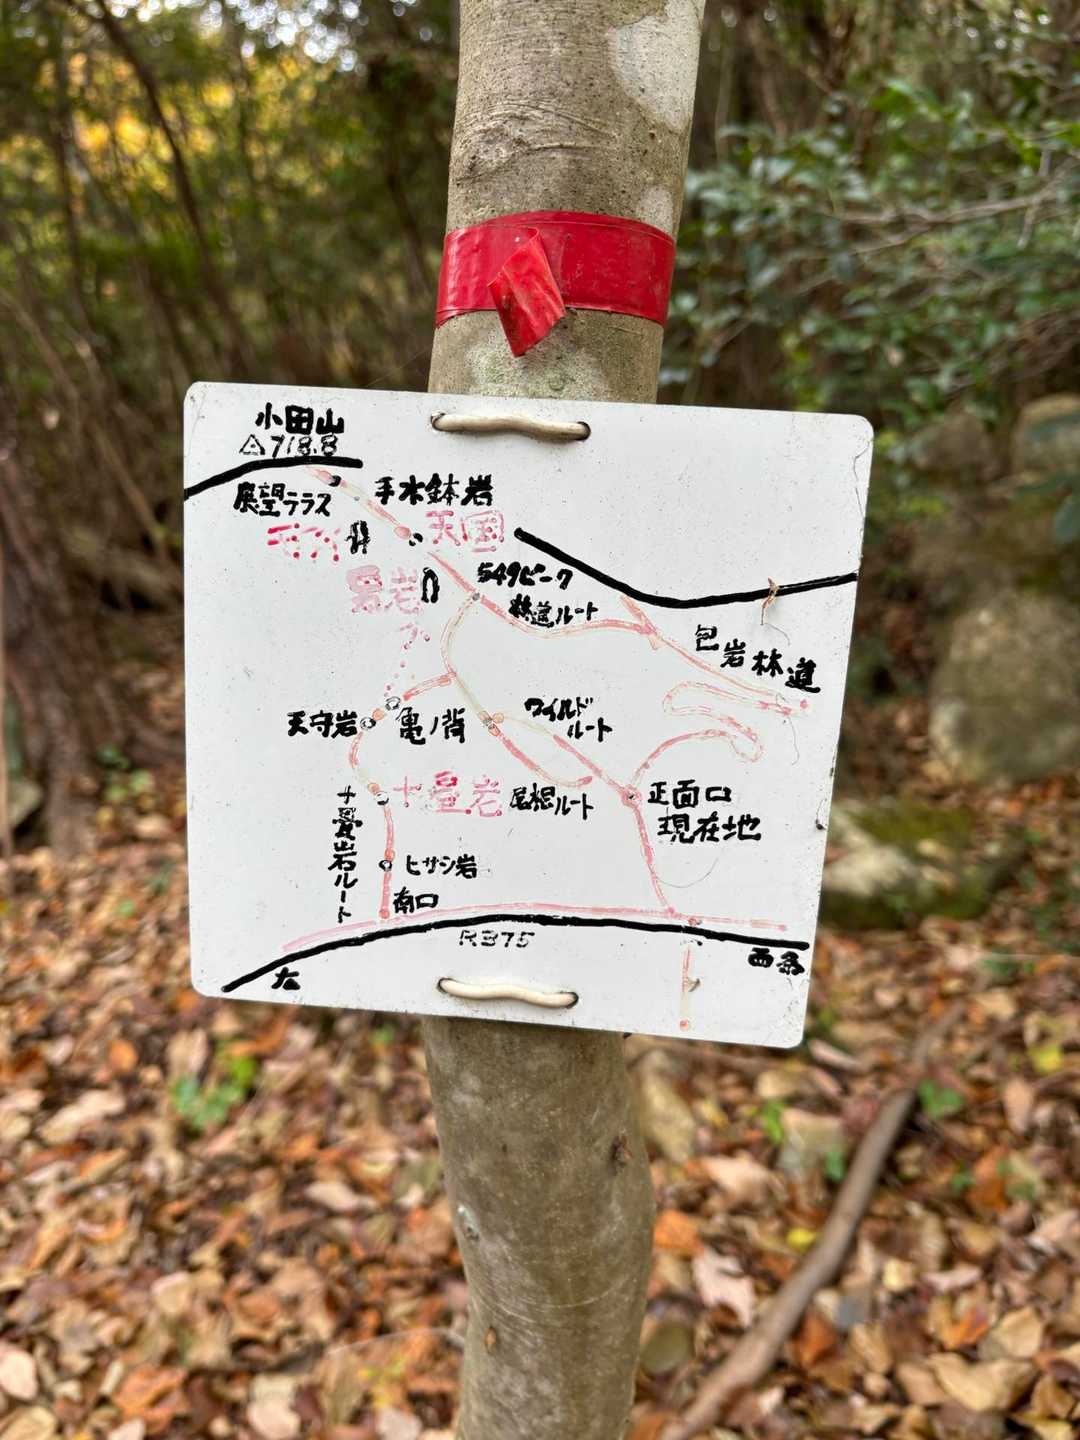 小田山
△718.8
展望テラス
手水鉢岩
天国
549ピーク
林道ルート
包岩林道
天守岩
亀ノ背
ワイルド
ルート
十畳岩
尾根ルート
正面口
現在地
十畳岩ルート
ヒサシ岩
南口
R375
西条